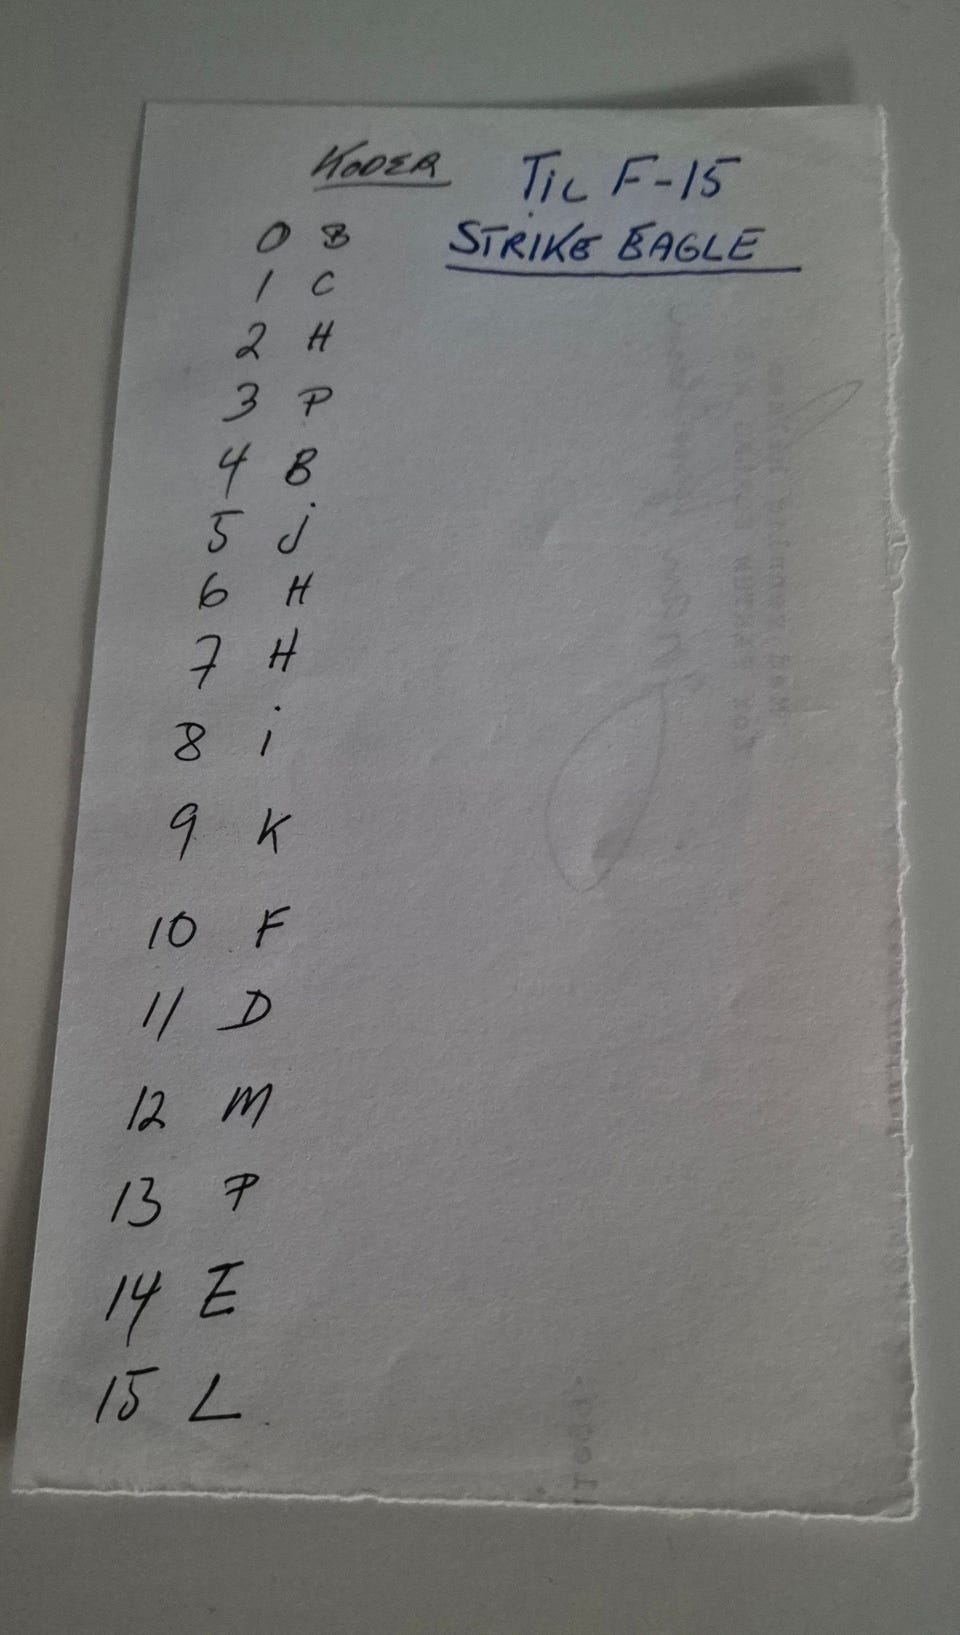 KODER
TiL F-15
STRIKE EAGLE
0 B
1 C
2 H
3 P
4 B
5 j
6 H
7 H
8 i
9 K
10 F
11 D
12 M
13 P
14 E
15 L